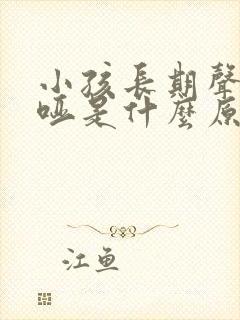 小孩長期聲
啞是什麼原
江魚